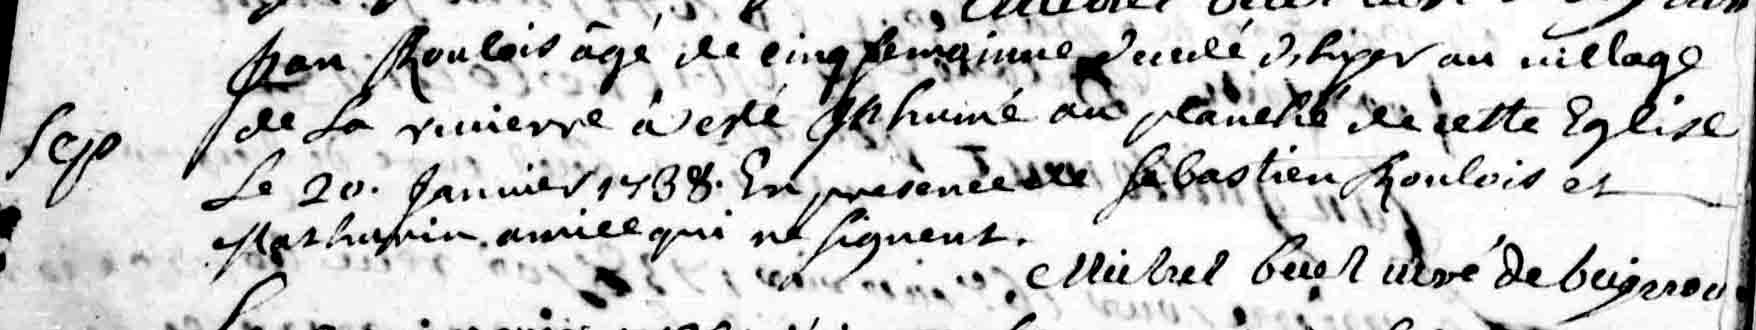 Jean Roulois âgé de cinq semainne decedé dhyer au village
Sep de La rivierre à esté Inhumé au planché de cette Eglise
Le 20. Janvier 1738. En presence de Sebastien Roulois et
Mathurin amice qui ne signent.
Michel buet curé de